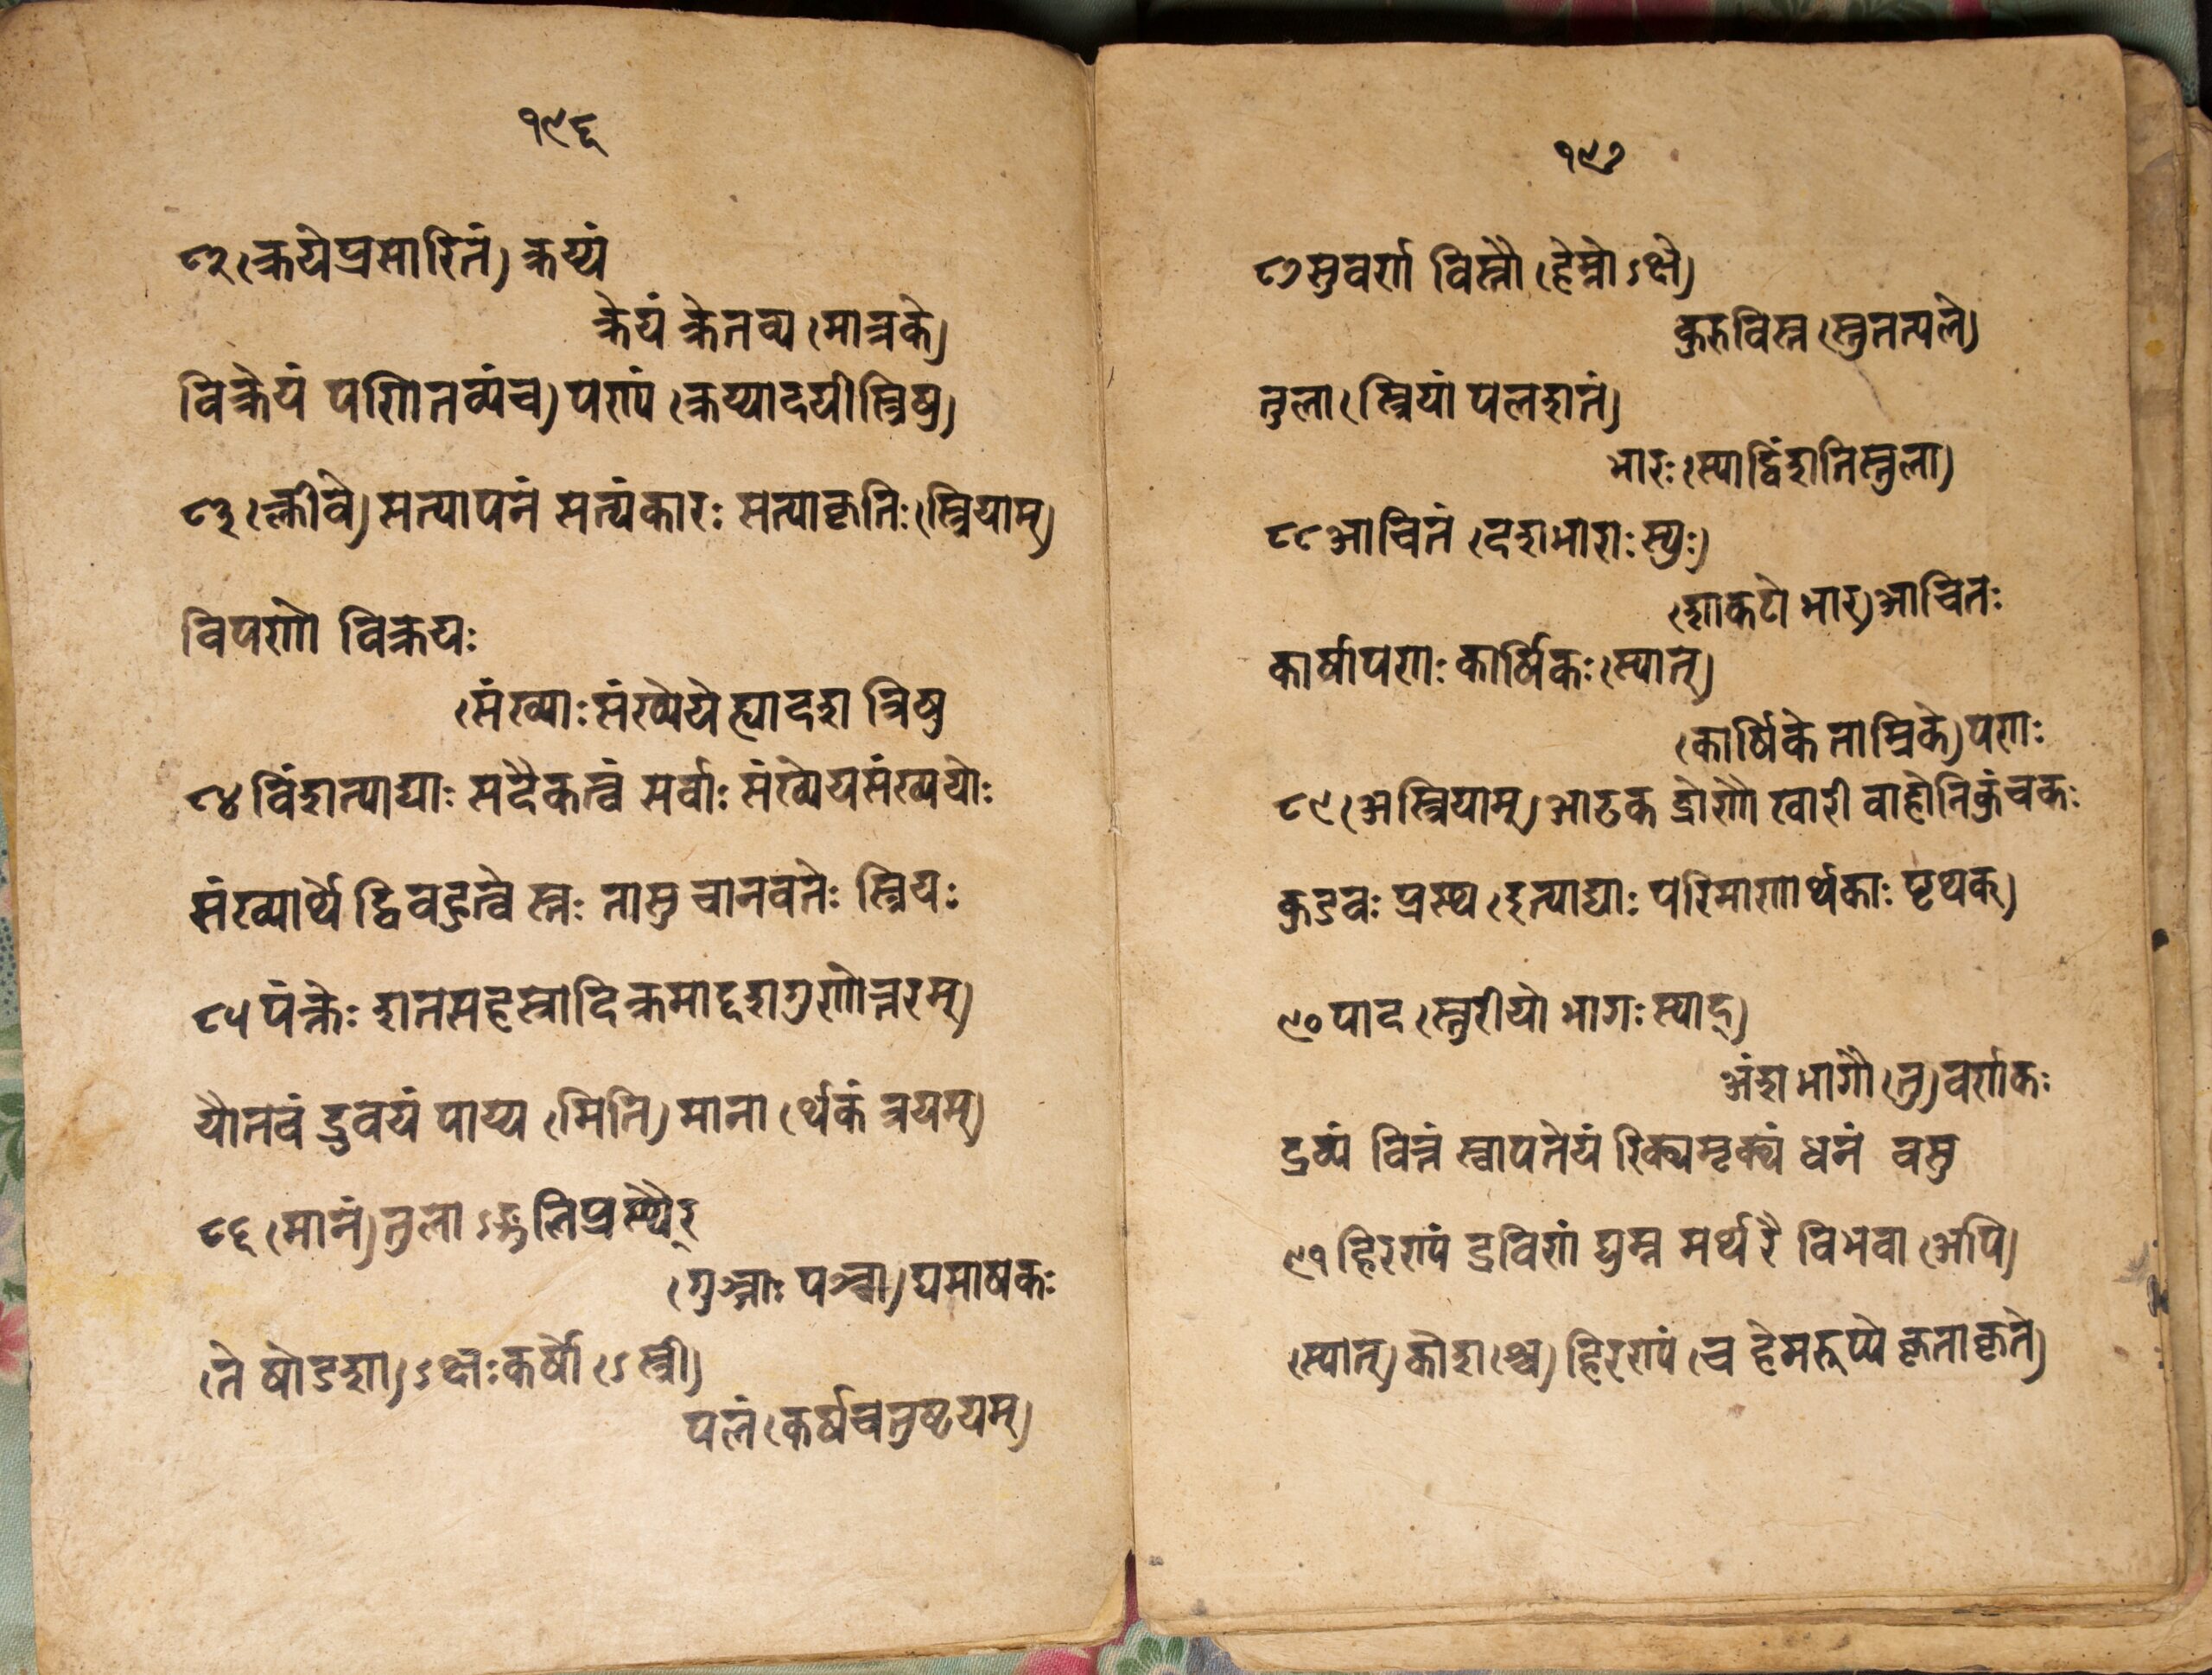 १९६
८२ (क्रये प्रसारितं) क्रय्यं
क्रेयं क्रेतव्य (मात्रके)
विक्रेयं पणितव्यं च) पण्यं (क्रय्यादयीस्त्रिषु)
८३ (क्लीवे) सत्यापनं सत्यंकारः सत्याकृतिः (स्त्रियाम्)
विपणो विक्रयः
(संख्याः संख्येये ह्यादश त्रिषु
८४ विंशत्याद्याः सदैकत्वे सर्वाः संख्येयसंख्ययोः
संख्यार्थे द्विबहुत्वे स्तः तासु चानवतेः स्त्रियः
८५ पंक्तेः शतसहस्रादि क्रमाद्दशगुणोत्तरम्)
यौतवं द्रुवयं पाय्य (मिति) माना (र्थकं त्रयम्)
८६ (मानं) तुला ऽङ्गुलिप्रस्थैर्
(गुञ्जाः पञ्चा) द्यमाषकः
(ते षोडशा) ऽक्षः कर्षो (ऽस्त्री)
पलं (कर्षचतुष्टयम्)
१९७
८७ सुवर्ण विस्तौ (हेम्नोऽक्षे)
कुरुविस्त (स्तु तत्पले)
तुला (स्त्रियां पलशतं)
भारः (स्याद्विंशतिस्तुला)
८८ आचितं (दशभाराः स्युः)
(शाकटो भार) आचितः
कार्षापणः कार्षिकः (स्यात्)
(कार्षिके ताम्रिके) पणः
८९ (अस्त्रियाम्) आढक द्रोणौ खारी वाहो निकुंचकः
कुडवः प्रस्थ (इत्याद्याः परिमाणार्थकाः पृथक्)
९० पाद (स्तुरीयो भागः स्याद्)
अंश भागौ (तु) वर्णकः
द्रव्यं वित्तं स्वापतेयं रिक्थमृक्थं धनं वसु
९१ हिरण्यं द्रविणं द्युम्न मर्थ रै विभवा (अपि)
(स्यात्) कोश (श्च) हिरण्यं (च हेमरूप्ये कृताकृते)